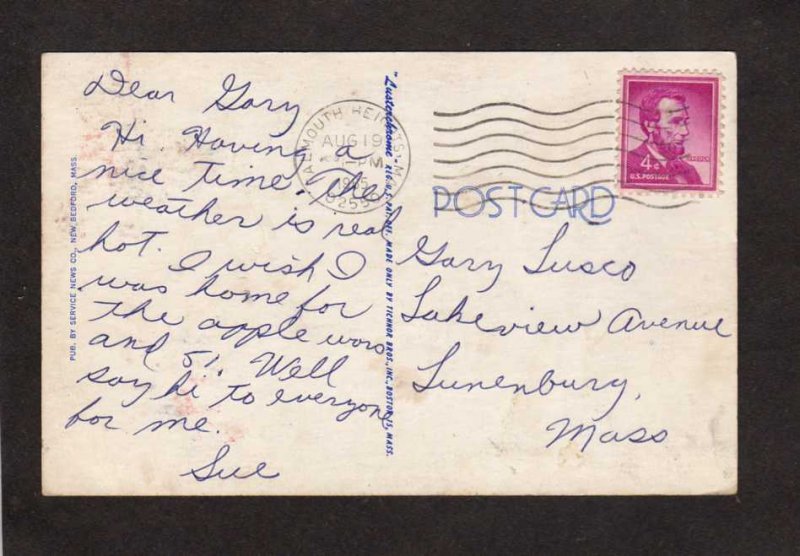 Dear Gary
Hi. Having a
nice time. The
weather is real
hot. I wish I
was home for
the apple wars
and 51. Well
say hi to everyone
for me.
Sue
PUB. BY SERVICE NEWS CO., NEW BEDFORD, MASS.
"Lusterchrome" REG. U.S. PAT. OFF. MADE ONLY BY TICHNOR BROS., INC., BOSTON 15, MASS.
FALMOUTH HEIGHTS, MA
AUG 19
PM
1965
POST CARD
4¢
U.S. POSTAGE
Gary Lusco
Lakeview Avenue
Lunenburg,
Mass